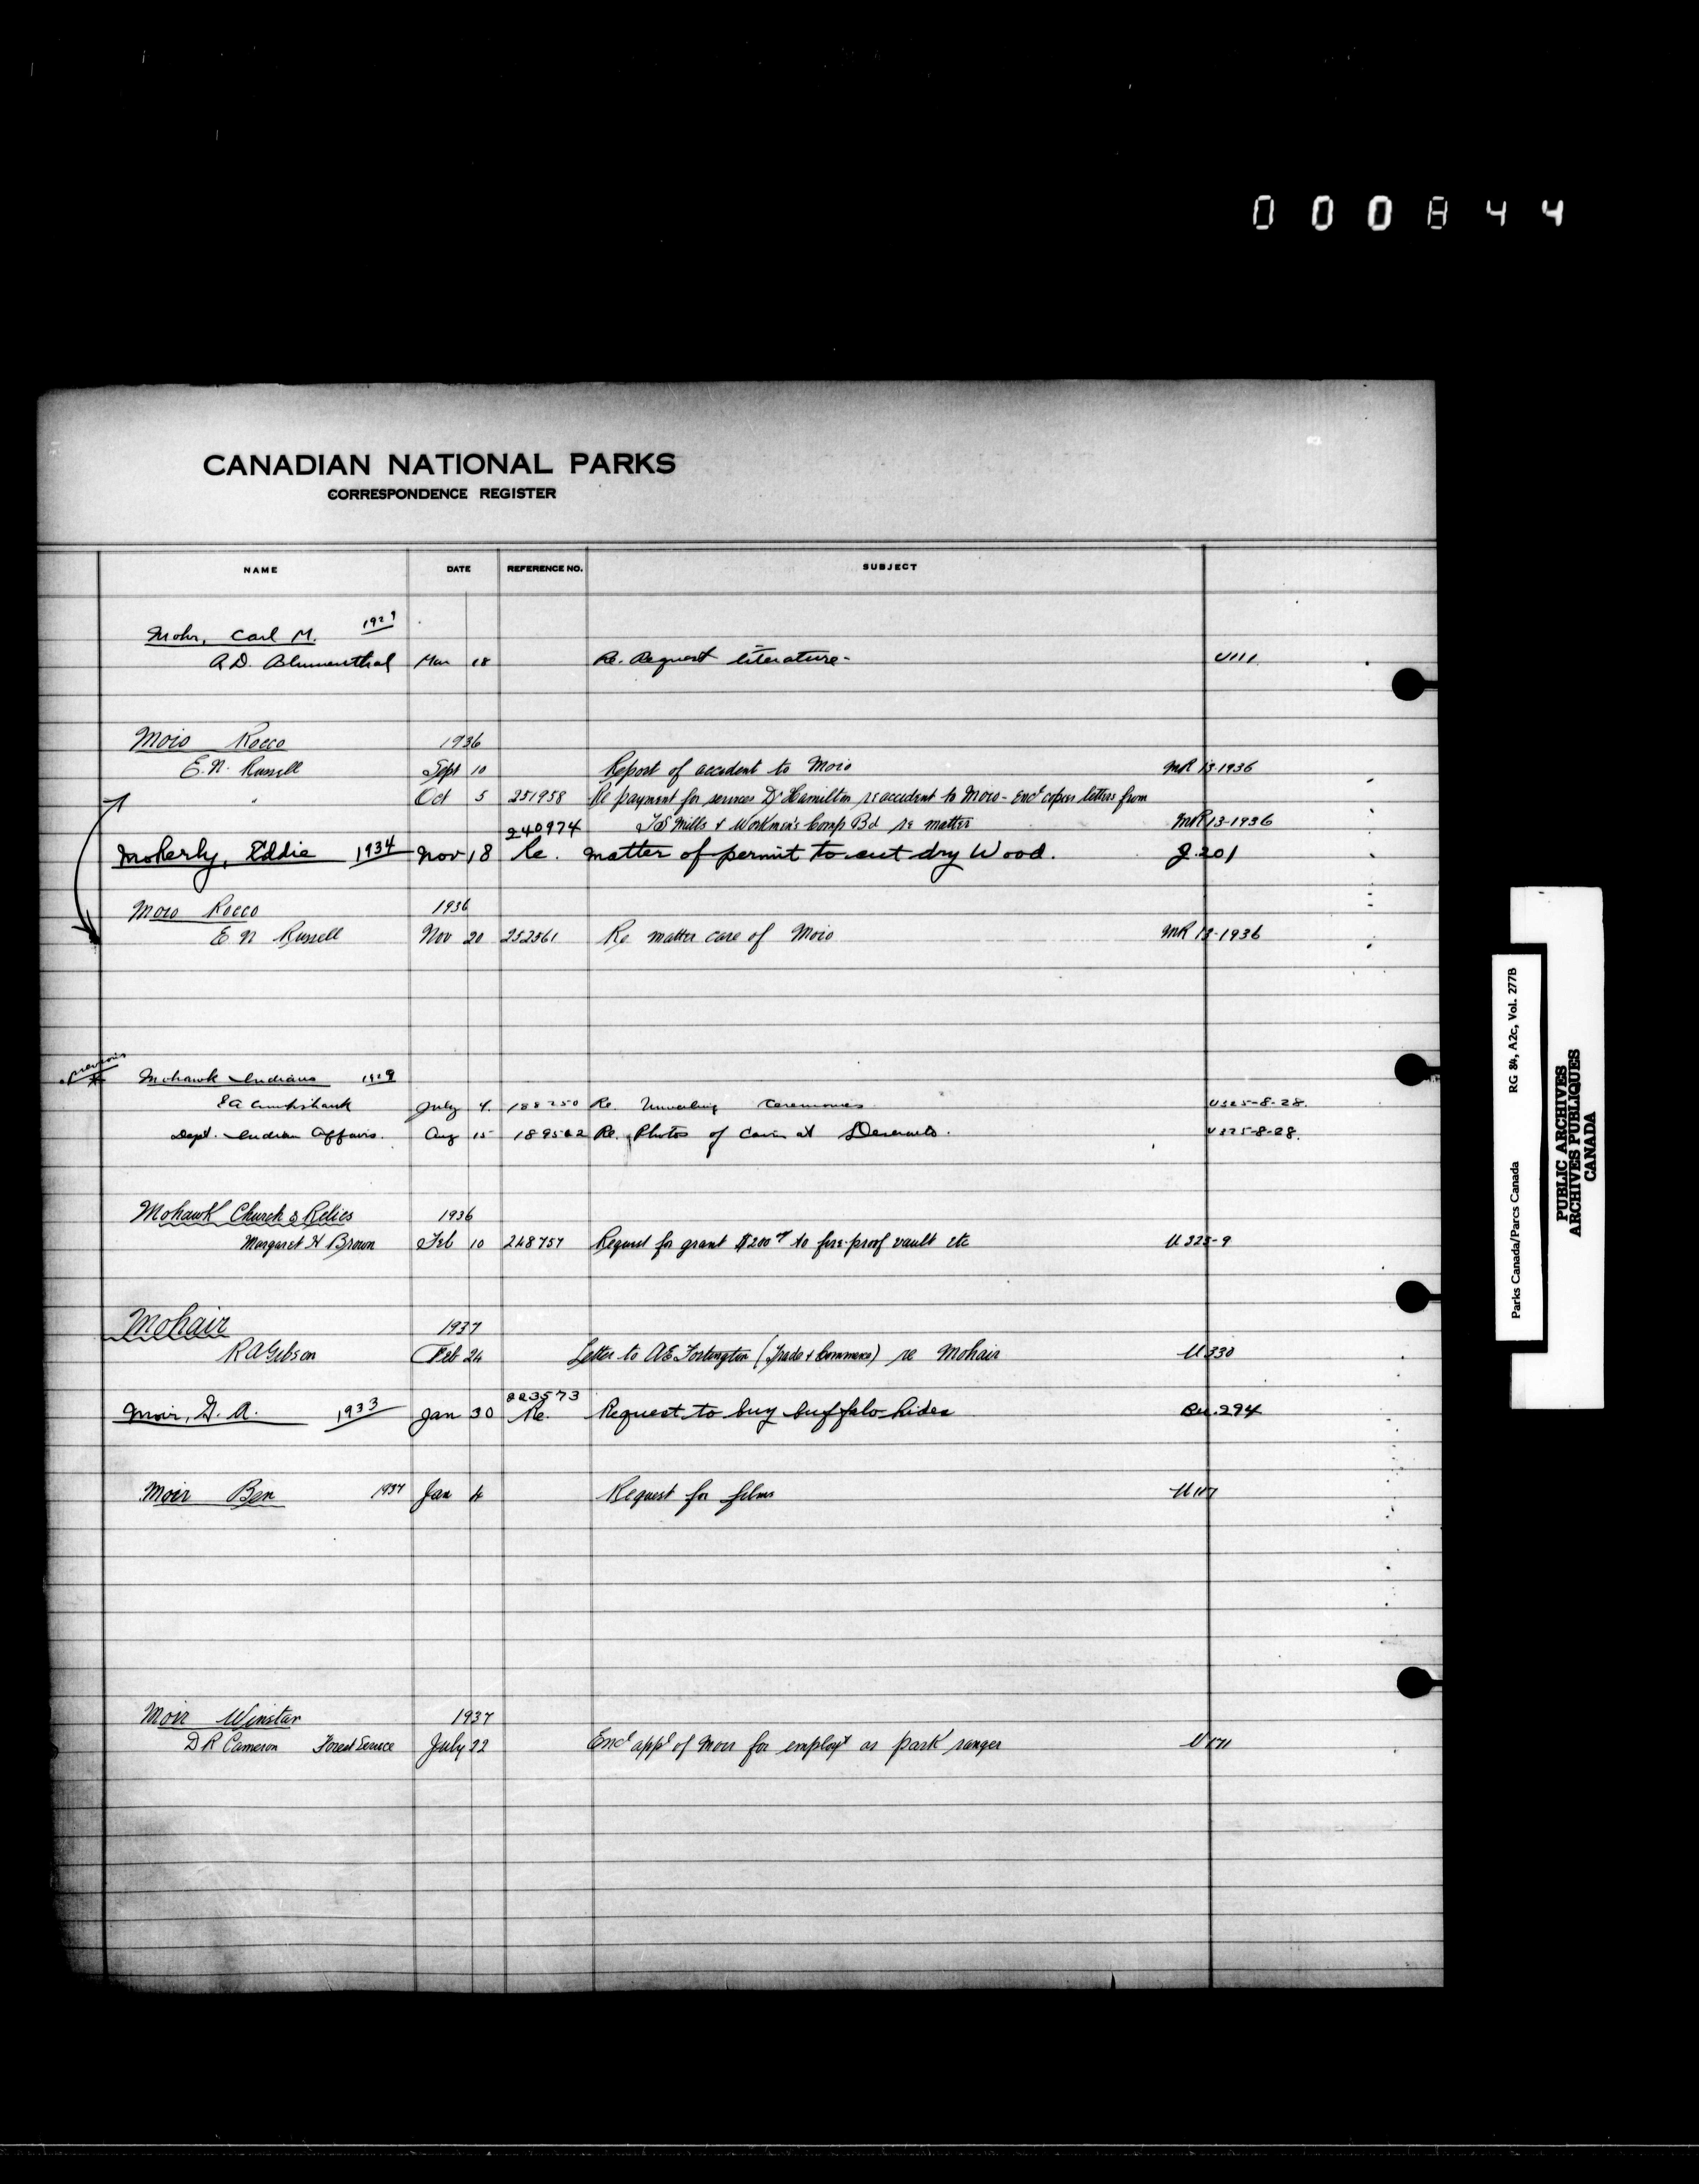 000844
CANADIAN NATIONAL PARKS
CORRESPONDENCE REGISTER
NAME DATE REFERENCE NO. SUBJECT
Mohr, Carl M. 1929
A.D. Blumenthal Mar 18 Re. Request literature- U111.
Moio Rocco 1936
E.N. Russell Sept 10 Report of accident to Moio MR 13-1936
" Oct 5 251958 Re payment for services Dr Hamilton re accident to Moio - Encl copies letters from
240974 Mills & Workmen's Comp Bd re matter MR 13-1936
Moberly, Eddie 1934 Nov 18 Re. matter of permit to cut dry Wood. J.201
Moio Rocco 1936
E N Russell Nov 20 252561 Re matter care of Moio MR 13-1936
previous
Mohawk Indians 1929
Cruikshank July 4. 188250 Re. Unveiling Ceremonies U325-8-28.
Dept. Indian Affairs. Aug 15 189562 Re. Photos of Cairn at Deseronto. U325-8-28.
Mohawk Church & Relics 1936
Margaret H Brown Feb 10 248757 Request for grant $200 to fire-proof vault etc U 325-9
Mohair 1937
R A Gibson Feb 24 Letter to A E Fortington (Trade & Commerce) re Mohair U 330
223573
Moir, G. A. 1933 Jan 30 Re. Request to buy buffalo hides Bu.294
Moir Ben 1937 Jan 4 Request for films U 117
Moir Winston 1937
D R Cameron Forest Service July 22 Encl appl of Moir for employt as park ranger U 171
Parks Canada/Parcs Canada RG 84, A2c, Vol. 2778
PUBLIC ARCHIVES
ARCHIVES PUBLIQUES
CANADA